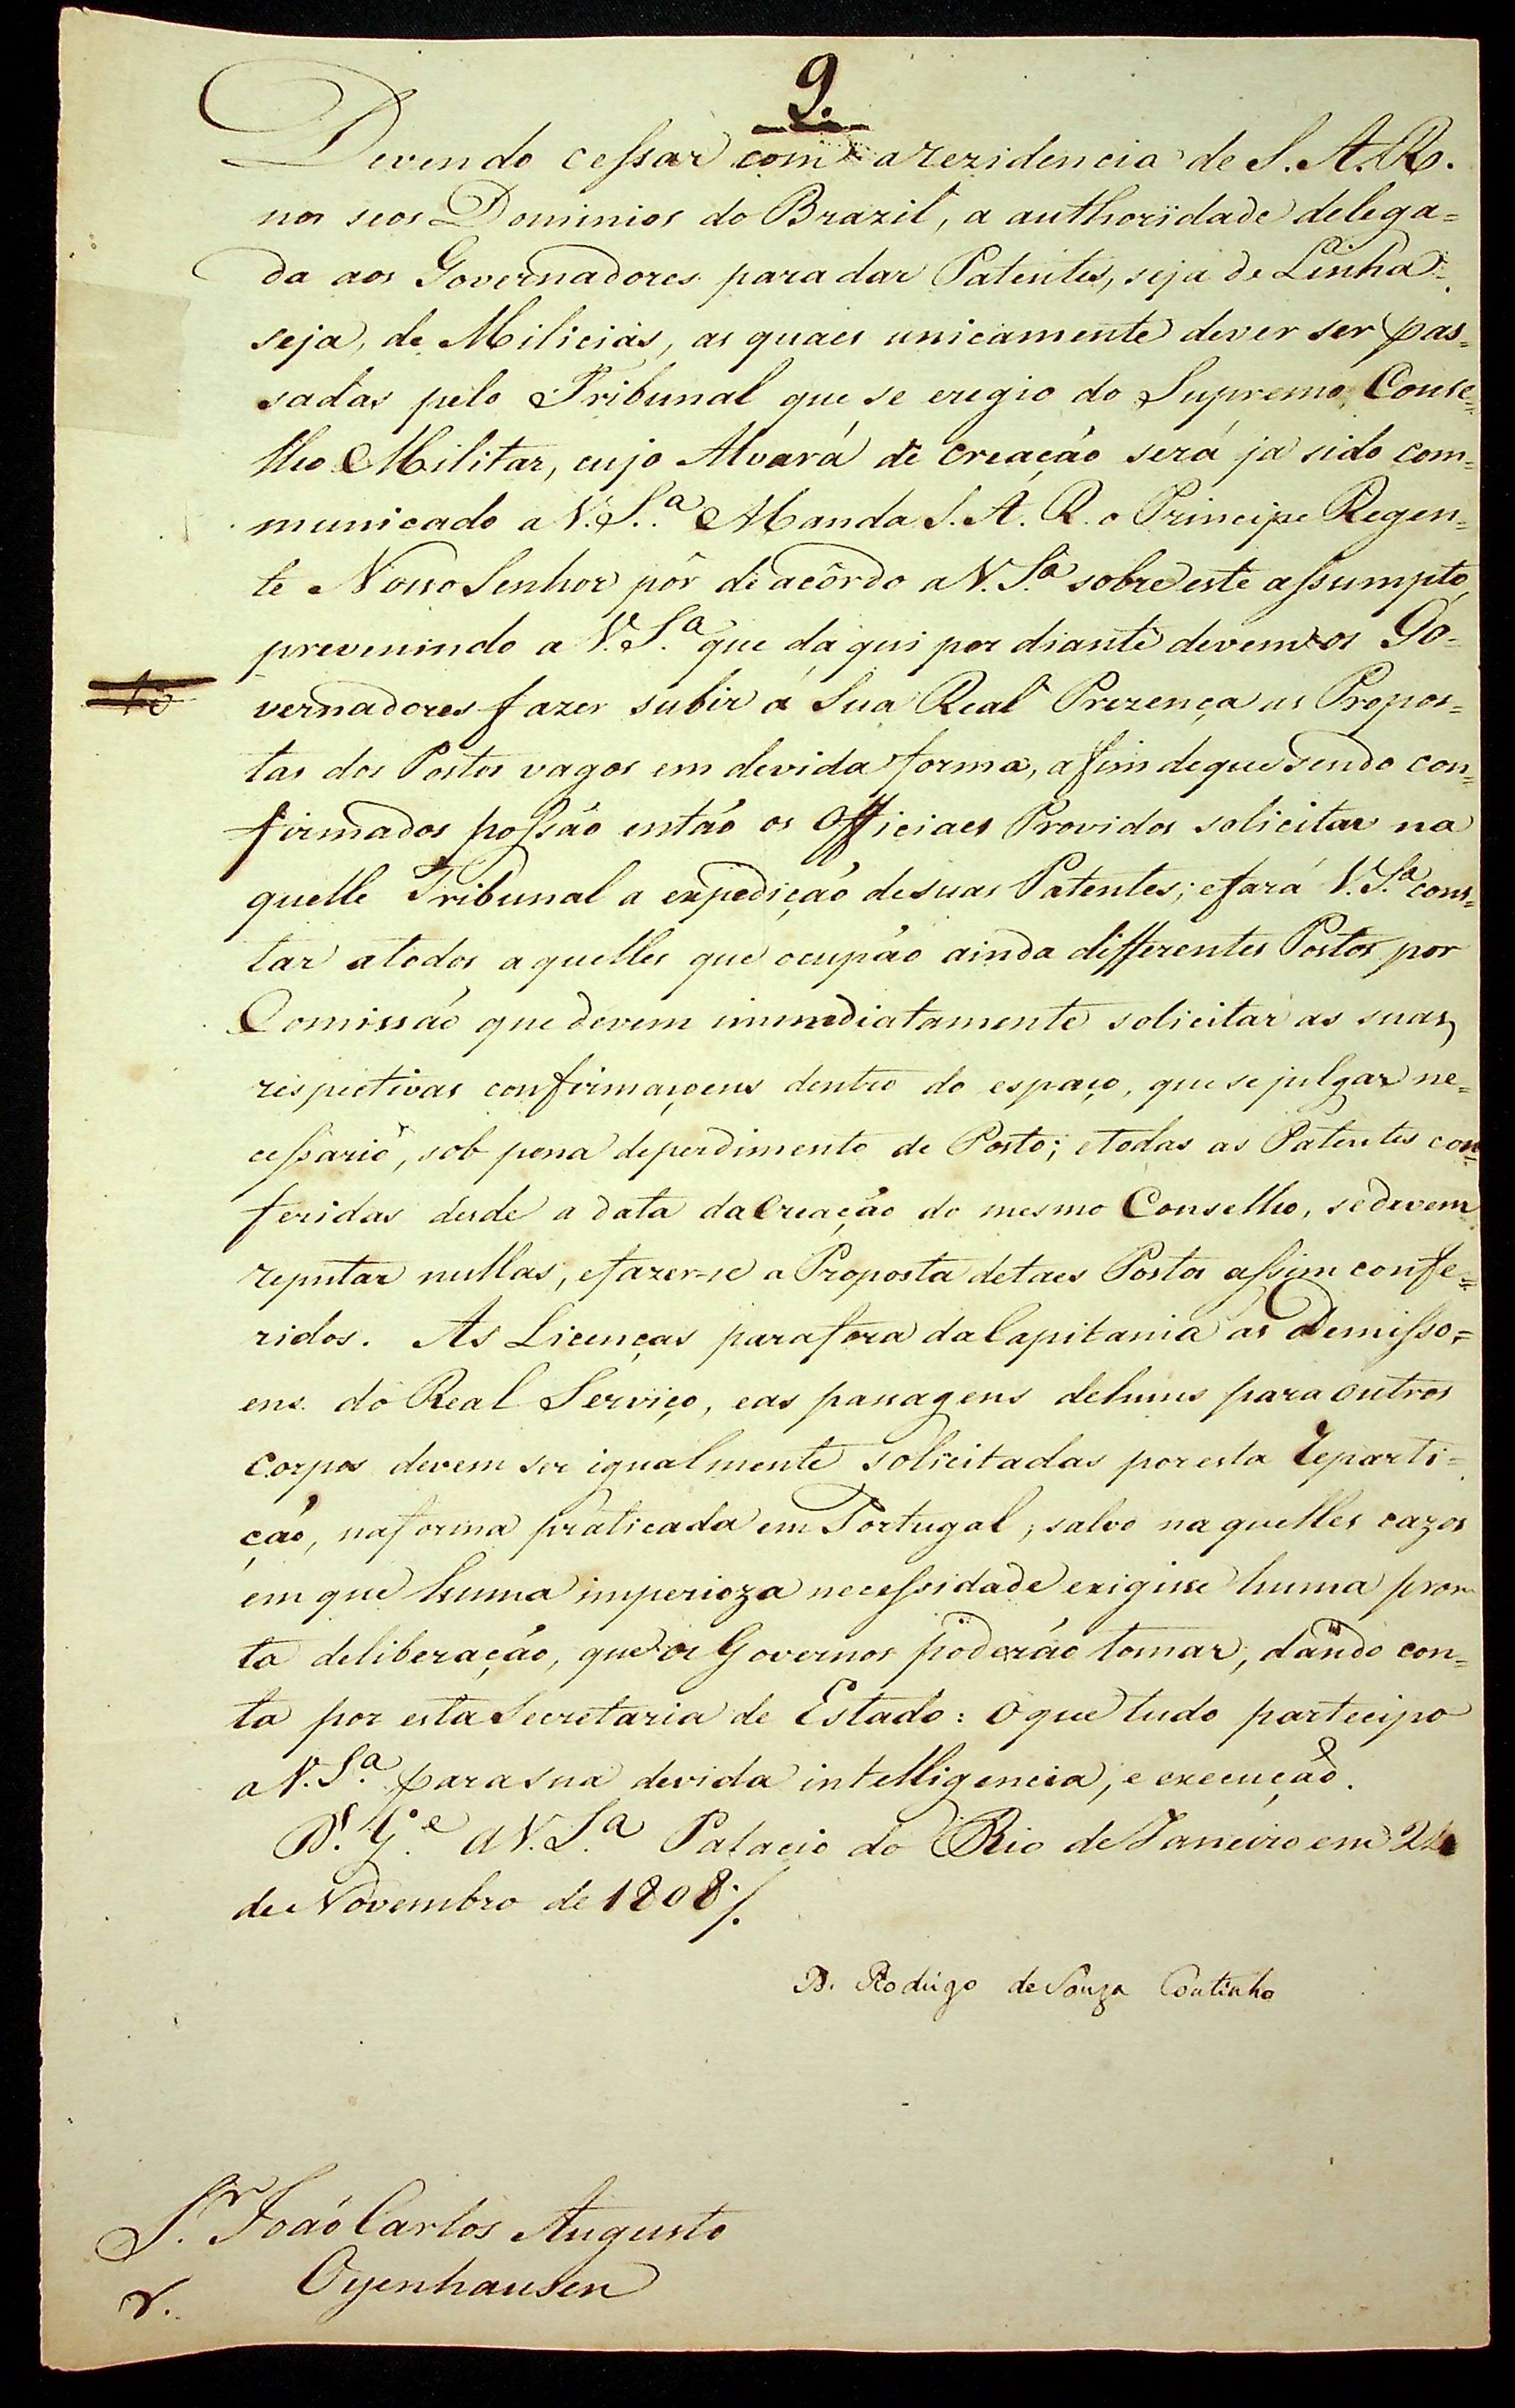 9.
Devendo cessar com a rezidencia de S. A. R.
nos seos Dominios do Brazil, a authoridade delega=
da aos Governadores para dar Patentes, seja de Linha
seja, de Milicias, as quaes unicamente dever ser pas=
sadas pelo Tribunal que se eregio do Supremo Conse=
lho Militar, cujo Alvará de creação será ja sido com=
municado a V. S.ª Manda S. A. R. o Principe Regen=
te Nosso Senhor pôr de acôrdo a V. S.ª sobre este assumpto,
prevenindo a V. S.ª que da qui por diante devem os Go=
vernadores fazer subir á Sua Real Prezença as Propos=
tas dos Postos vagos em devida forma, afim de que sendo con=
firmados possão então os Officiaes Providos solicitar na
quelle Tribunal a expedição de suas Patentes; e fará V. S.ª cons=
tar a todos aquelles que ocupão ainda differentes Postos por
Comissão que devem immediatamente solicitar as suas
respectivas confirmaçoens dentro do espaço, que se julgar ne=
cessario, sob pena de perdimento de Posto; e todas as Patentes con=
feridas desde a data da Creação do mesmo Conselho, se devem
reputar nullas, e fazer-se a Proposta de taes Postos assim confe=
ridos. As Licenças para fora da Capitania as Demisso=
ens do Real Serviço, e as passagens de huns para outros
corpos devem ser igualmente solicitadas por esta Reparti=
ção, na forma praticada em Portugal; salvo naquelles cazos
em que huma imperioza necessidade exigisse huma prom
ta deliberação, que os Governos poderáõ tomar, dando con=
ta por esta Secretaria de Estado: O que tudo partecipo
a V. S.ª para sua devida intelligencia, e execução.
D.s G.e a V. S.ª Palacio do Rio de Janeiro em 24
de Novembro de 1808/.
D. Rodrigo de Souza Coutinho
S.r João Carlos Augusto
Oyenhausen
r.